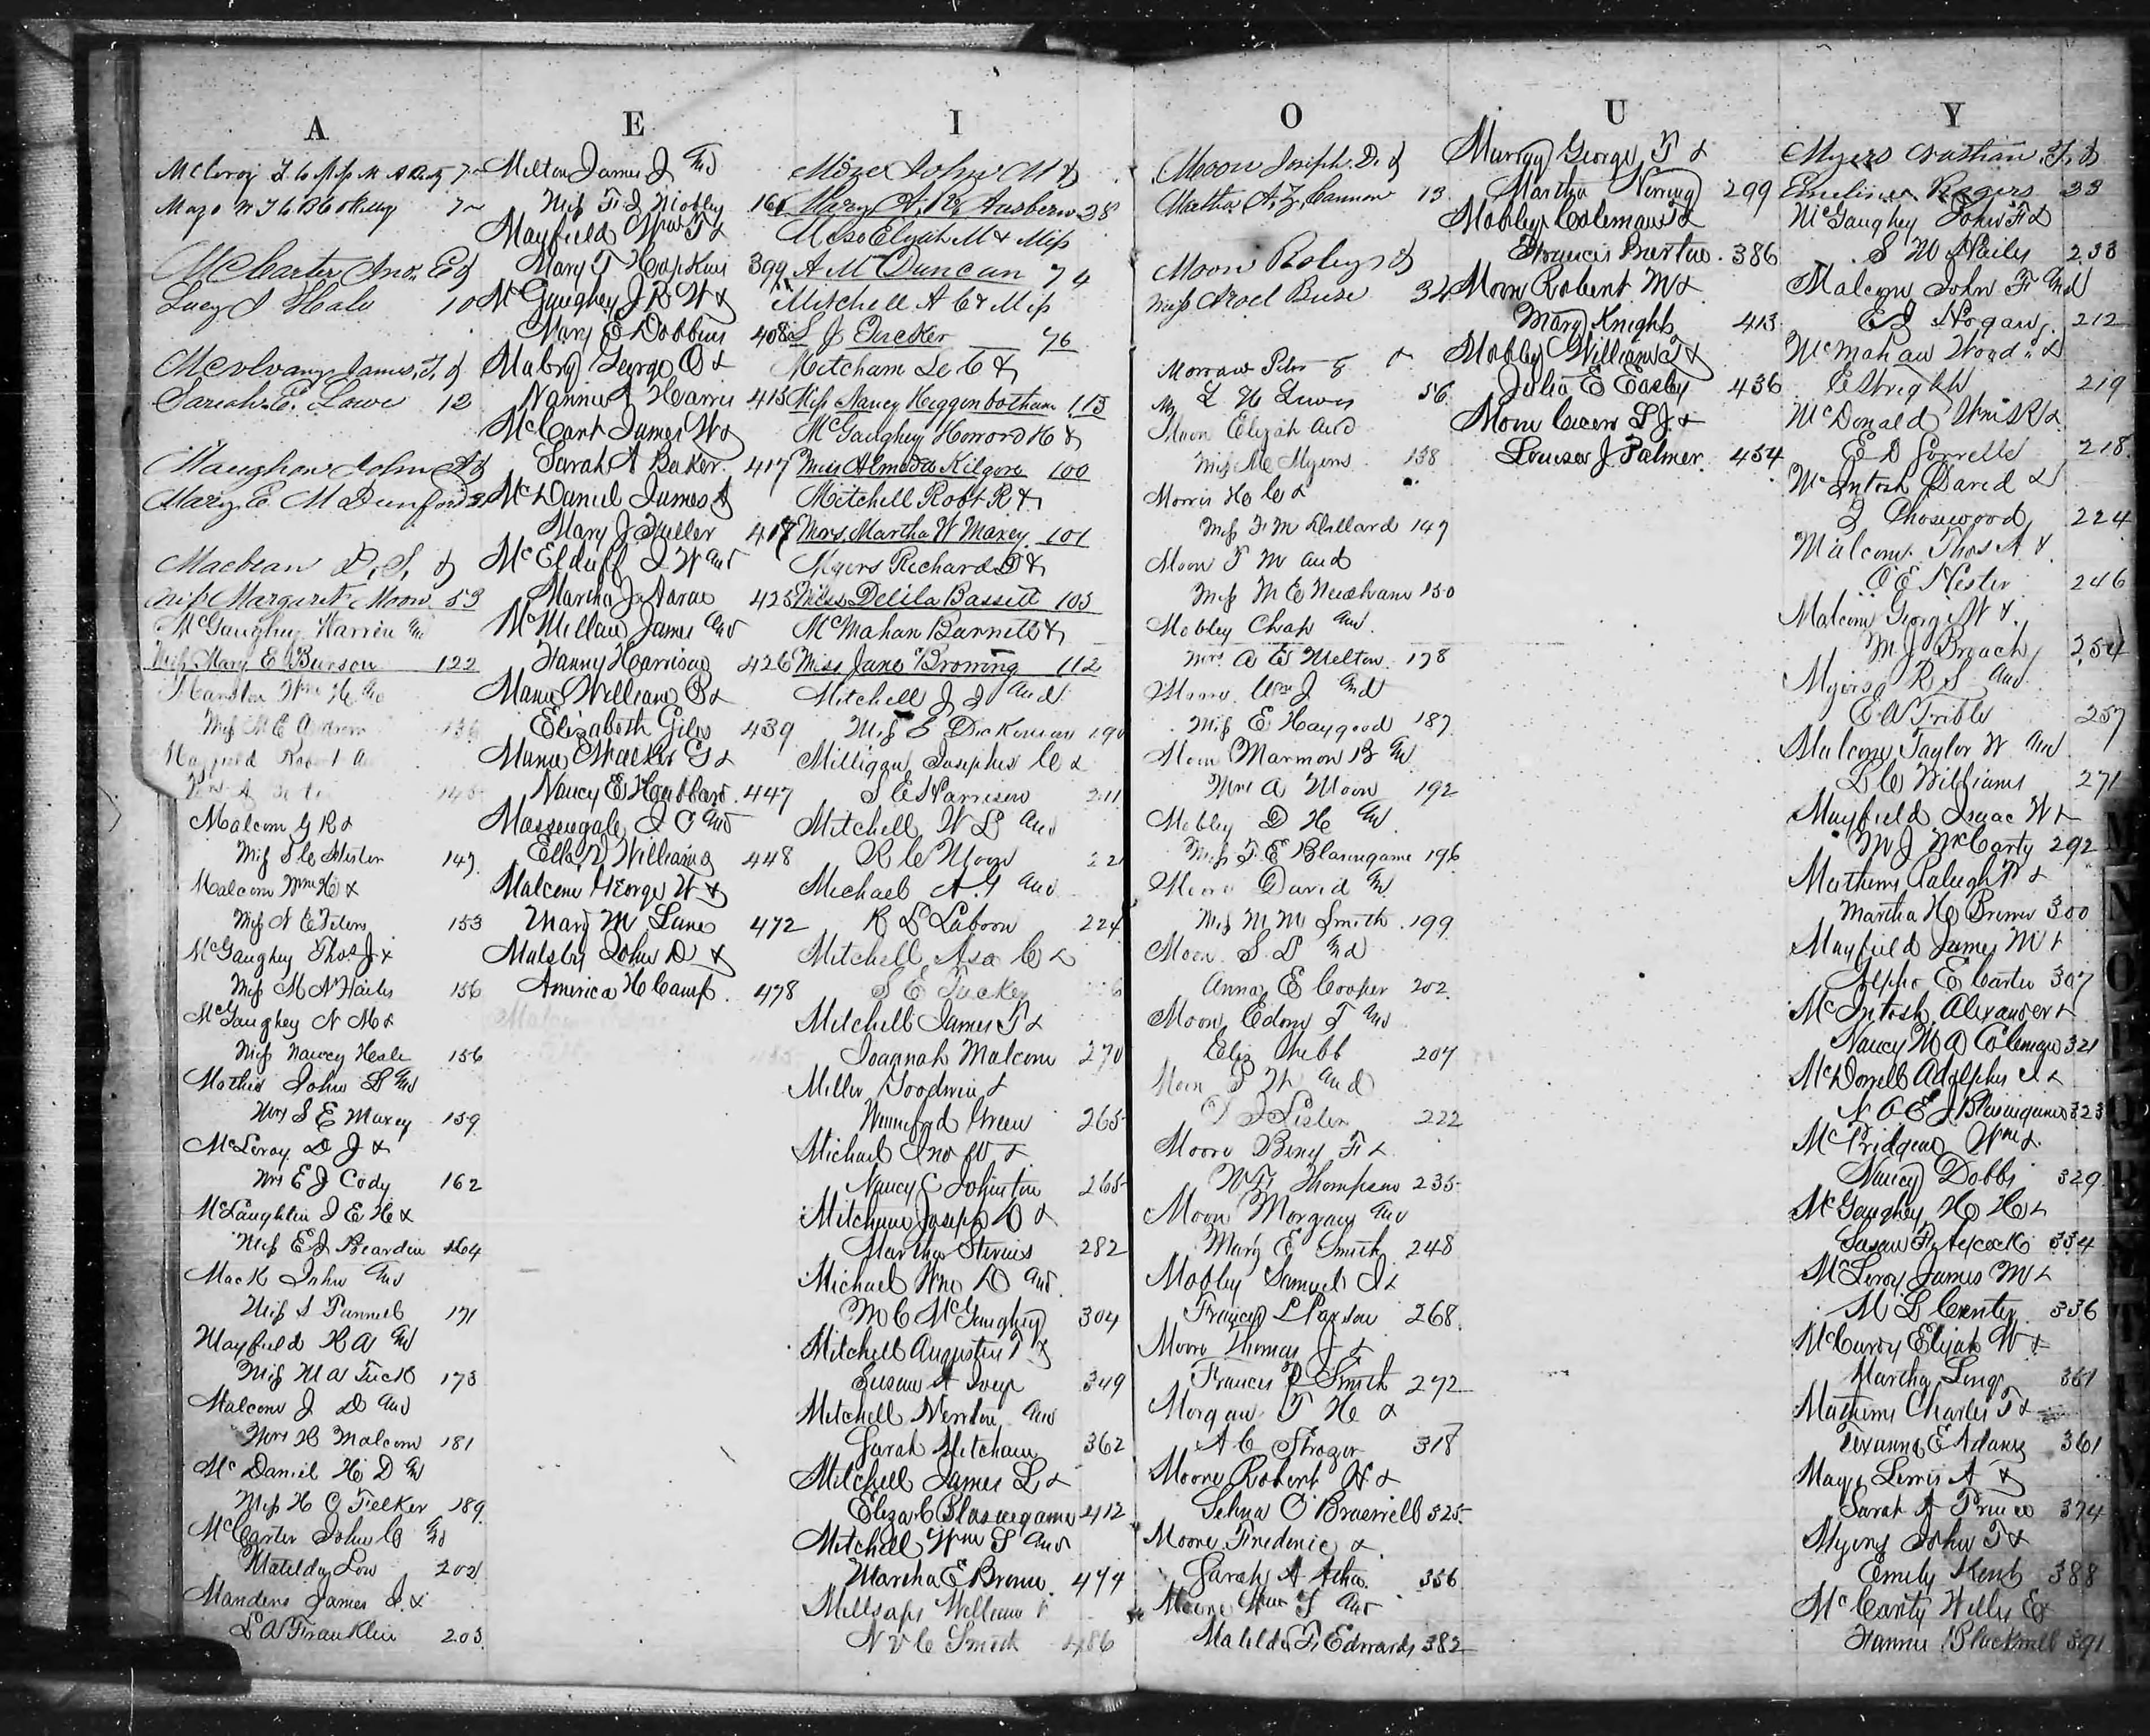 A
McLeroy
7
Mayo
7
McCarter Jno. E &
Lucy J Hale 10
James T. &
Sariah E. Lowe 12
Maughon John &
Mary E. M Dunford
Macbean D. S. &
Miss Margaret Moon 53
McGaughey Warren And
Miss Mary E Burson 122
Wm H And
Miss M E
136
Robert
145
Malcom G R &
Miss S C Hester 147
Malcom Wm H &
Miss N E Peters 153
McGaughey Thos J &
Miss M N Hailes 156
McGaughey N M &
Miss Nancy Heale 156
Mathis John L And
Mrs S E Maxey 159
McLeroy D J &
Mrs E J Cody 162
McLaughlin J E H &
Miss E J Bearden 164
Mack John And
Miss S Pannell 171
Mayfield R A And
Miss M A Tuck 173
Malcom J D And
Mrs H Malcom 181
McDaniel H D And
Miss H C Felker 189
McCarter John C And
Matilda Low 202
Manders James J. &
L A Franklin 203
E
Milton James J And
Miss F J Mobley 161
Mayfield Wm T &
Mary T Hopkins 399
McGaughey J R W &
Mary E Dobbins 408
Mabry George O &
Nannie A Harris 415
McCant James W &
Sarah A Baker 417
McDaniel James A
Mary J Fuller 417
McElduff J W and
Martha J 425
McMillan James And
Fanny Harrison 426
Mann William B &
Elizabeth Giles 439
Mann Walker G &
Nancy E Hubbard 447
Massengale J C And
Ella V Williams 448
Malcom George W &
Mary M Lane 472
Malsby John D &
America H Camp 478
I
John M &
Mary A. 38
Elijah M & Miss
A M Duncan 74
Mitchell A C & Miss
S J Tucker 76
Mitcham Le C &
Miss Nancy Higgenbotham 113
McGaughey Howard H &
Miss Almeda Kilgore 100
Mitchell Robt R &
Mrs. Martha W Maxey 101
Myers Richard D &
Miss Delila Bassett 103
McMahan Barnett &
Miss Jane Browning 112
Mitchell J J And
Miss E Dickinson 190
Milligan Josephus C &
S E Harrison 211
Mitchell W L And
R C Moon 22
Michael A. J And
R L Laboon 224
Mitchell Asa C &
S E Tucker
Mitchell James T &
Joannah Malcom 270
Miller Goodwin &
Winnifred Green 265
Michael Jno W &
Nancy C Johnston 265
Mitcham Joseph D &
Martha Stevens 282
Michael Wm D And
M C McGaughey 304
Mitchell Augustin T &
Susan A Ivey 349
Mitchell Newton And
Sarah Mitcham 362
Mitchell James L &
Eliza C Blasingame 412
Mitchell Wm S And
Martha E Brown 474
Millsaps William &
N V C Smith 486
O
Moon Joseph D. &
Martha A. Z. Cannon 13
Moon Roley &
Miss 34
Morrow Peter &
L H Lewis 56
Moon Elijah And
Miss M C Myers 138
Morris H C &
Miss F M Dillard 147
Moon T M and
Miss M E Needham 150
Mobley Chap And
Mrs A E Melton 178
Moore Wm J And
Miss E Haygood 187
Moon Marmon B And
Mrs A Moon 192
Mobley D H And
Miss T E Blasingame 196
Moore David And
Miss M M Smith 199
Moon S D And
Anna E Cooper 202
Moon Edom T And
Eliz Webb 207
Moon P W And
D J Lister 222
Moore Benj F &
M F Thompson 235
Moon Morgan And
Mary E Smith 248
Mobley Samuel J &
Frances L Paxson 268
Moore Thomas J &
Frances P Smith 272
Morgan T H &
A C Strozer 318
Moore Robert H &
Selma O Braswell 325
Moore Frederic &
Sarah A 356
Moore Wm T And
Matilda F. Edwards 382
U
Murray George T &
Martha 299
Mobley Coleman T &
Frances Burton 386
Moon Robert M &
Mary Knight 413
Mobley William A &
Julia E Easley 436
Moon Cicero L J &
Louisa J Palmer 454
Y
Myers Nathan T. &
Emeline Rogers 23
McGaughey John F &
S M Haily 233
Malcom John F And
E J Hogan 212
McMahan Wood &
E Wright 219
McDonald Wm R &
E D Sorrells 218
McIntosh David &
J Chosewood 224
Malcom Thos A &
O E Hester 246
Malcom George W &
M J Breach 254
Myers R S And
E A Tribble 257
Malcom Taylor W And
L C Williams 271
Mayfield Isaac W &
M J McCarty 292
Mathews Raleigh T &
Martha H Brewer 300
Mayfield James M &
E Carter 307
McIntosh Alexander &
Nancy M A Coleman 321
McDorrell Adolphus J &
N A E J Blasingame 323
McPridgeon Wm &
Nancy Dobbs 329
McGaughey H H &
Susan F Aycock 334
McLeroy James M &
M L Center 336
McCurdy Elijah W &
Martha Long 351
Mathews Charles T &
Roxanna E Adams 361
Mayo Lewis A &
Sarah A Prince 374
Myers John T &
Emily Kent 388
McCarty Willis E &
Fannie Blackwell 391